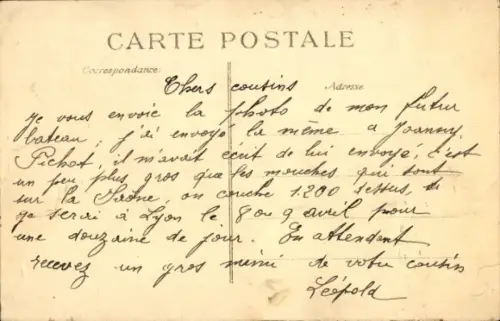 CARTE POSTALE
Correspondance
Adresse
Chers cousins
je vous envoie la photo de mon futur
bateau, j'ai envoyé la même a Joanny
Pichot, il m'avait écrit de lui envoyé, c'est
un peu plus gros que les mouches qui sont
sur la Saône, on couche 1.200 dessus,
je serai à Lyon le 8 ou 9 avril pour
une douzaine de jour. En attendant
recevez un gros mimi de votre cousin
Léopold